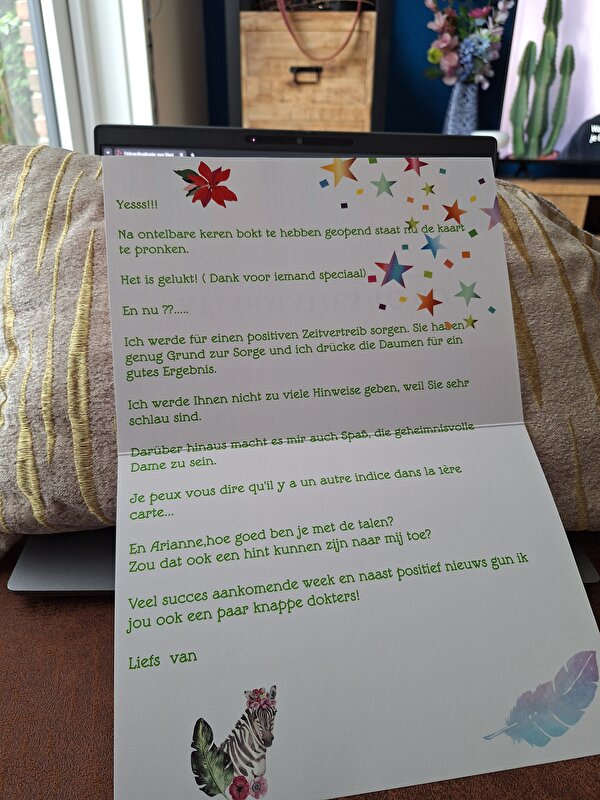 Yesss!!!
Na ontelbare keren bokt te hebben geopend staat nu de kaart
te pronken.
Het is gelukt! ( Dank voor iemand speciaal)
En nu ??.....
Ich werde für einen positiven Zeitvertreib sorgen. Sie haben
genug Grund zur Sorge und ich drücke die Daumen für ein
gutes Ergebnis.
Ich werde Ihnen nicht zu viele Hinweise geben, weil Sie sehr
schlau sind.
Darüber hinaus macht es mir auch Spaß, die geheimnisvolle
Dame zu sein.
Je peux vous dire qu'il y a un autre indice dans la 1ère
carte...
En Arianne,hoe goed ben je met de talen?
Zou dat ook een hint kunnen zijn naar mij toe?
Veel succes aankomende week en naast positief nieuws gun ik
jou ook een paar knappe dokters!
Liefs van